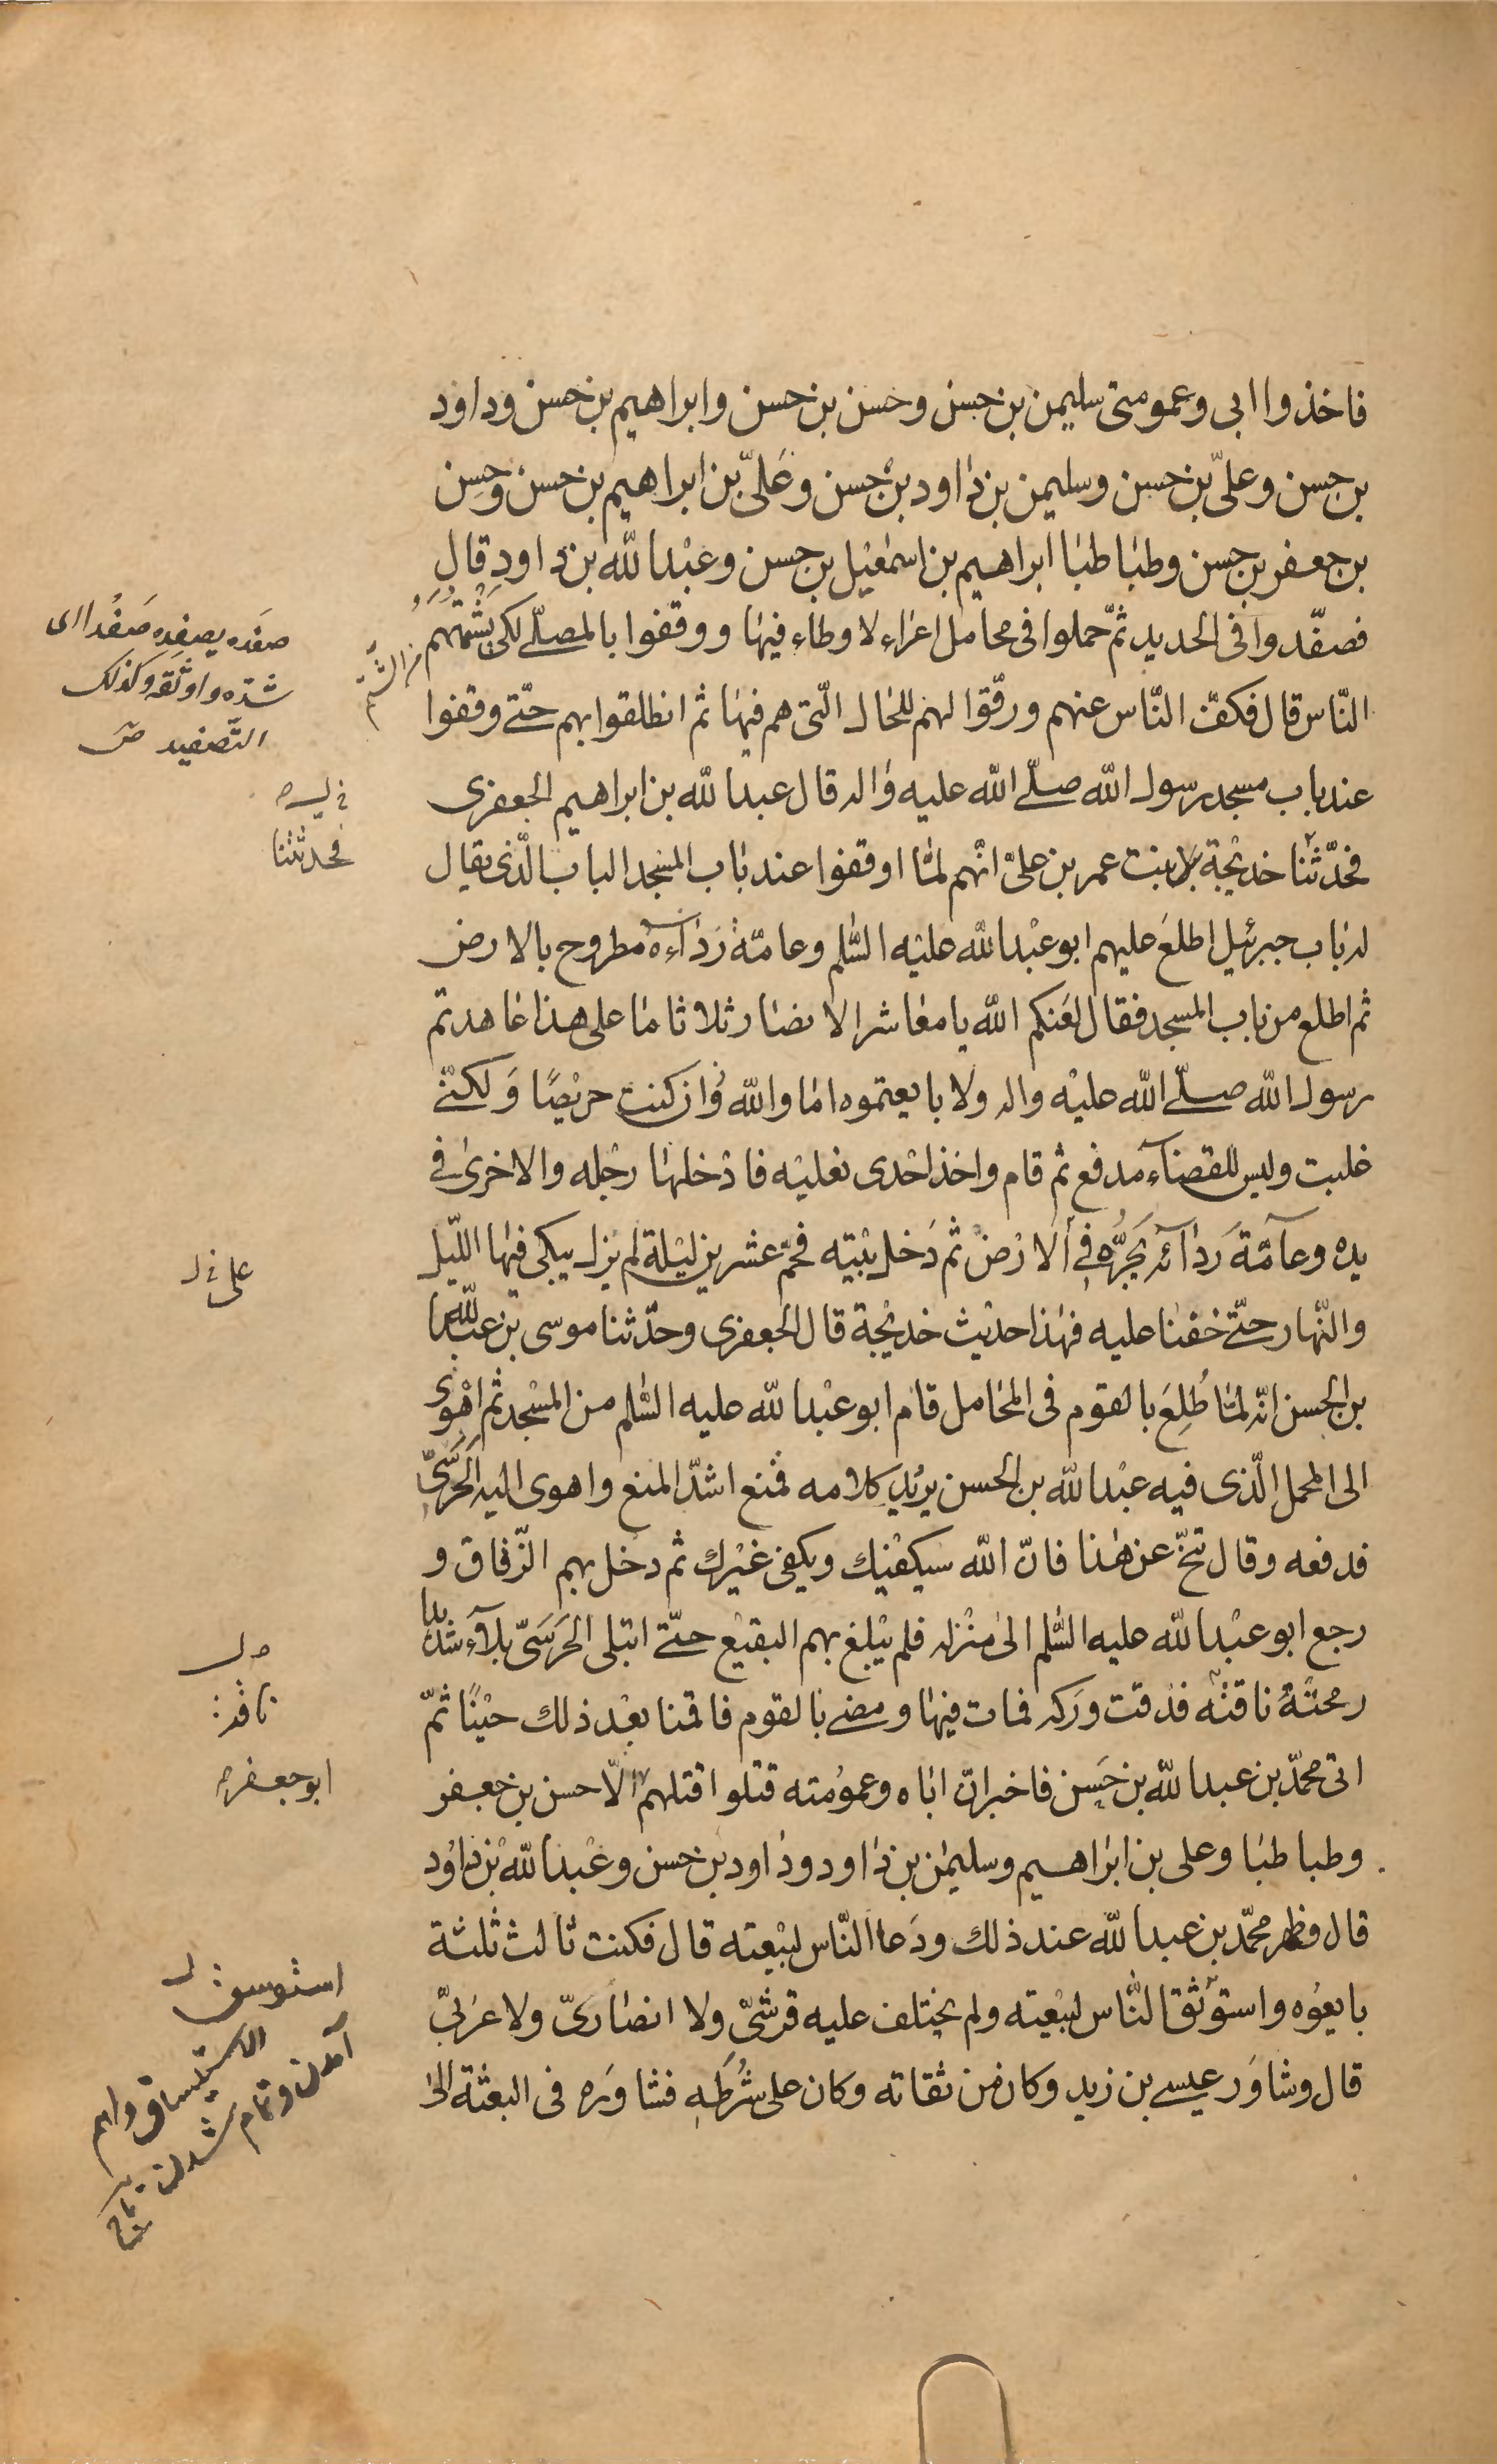 فاخذوا ابى وعمومتى سليمن بن حسن وحسن بن حسن وابراهيم بن حسن وداود
بن حسن وعلىّ بن حسن وسليمن بن داود بن حسن وعَلىّ بن ابراهيم بن حسن وحسن
بن جعفر بن حسن وطباطبا ابراهيم بن اسمعيل بن حسن وعبدالله بن داود قال
فصفّدوا فى الحديد ثمّ حملوا فى محامل اعراء لا وطاء فيها ووقفوا بالمصلّى لكى يشمتهم
النّاس قال فكفّ النّاس عنهم ورقّوا لهم للحال الّتى هم فيها ثم انطلقوا بهم حتّى وقفوا
عند باب مسجد رسول الله صلّى الله عليه واله قال عبدالله بن ابراهيم الجعفرى
فحدّثتنا خديجة بنت عمر بن علىّ انّهم لمّا اوقفوا عند باب المسجد الباب الّذى يقال
له باب جبرئيل اطلع عليهم ابو عبدالله عليه السّلم وعامّة ردآءه مطروح بالارض
ثم اطلع من باب المسجد فقال لعنكم الله يا معاشر الانصار ثلاثا ما على هذا عاهدتم
رسول الله صلّى الله عليه واله ولا بايعتموه اما والله وان كنت حريصًا ولكنّى
غلبت وليس للقضآء مدفع ثم قام واخذ احدى نعليه فادخلها رجله والاخرى فى
يده وعآمّة ردآئه يَجُرُّه فى الارض ثم دخل بيته فحمّ عشرين ليلة لم يزل يبكى فيها اللّيل
والنّهار حتّى خفنا عليه فهذا حديث خديجة قال الجعفرى وحدّثنا موسى بن عبدالله
بن الحسن انّه لمّا طُلِعَ بالقوم فى المحامل قام ابو عبدالله عليه السّلم من المسجد ثم اهوى
الى المحمل الّذى فيه عبدالله بن الحسن يريد كلامه فمنع اشدّ المنع واهوى اليه الحَرَسَىّ
فدفعه وقال تنحّ عن هذا فانّ الله سيكفيك ويكفى غيرك ثم دخل بهم الزّقاق و
رجع ابو عبدالله عليه السّلم الى منزله فلم يبلغ بهم البقيع حتّى ابتلى الحَرَسَىّ بلآء شديدا
رمحته ناقته فدقت وركه فمات فيها ومضى بالقوم فاقمنا بعد ذلك حينًا ثمّ
اتى محمّد بن عبدالله بن حَسن فاخبر انّ اباه وعمومته قتلوا قتلهم الّا حسن بن جعفر
وطباطبا وعلى بن ابراهيم وسليمن بن داود وداود بن حسن وعبدالله بن داود
قال وظهر محمّد بن عبدالله عند ذلك ودَعا النّاس لبيعته قال فكنت ثالث ثلثة
بايعوه واستوثق النّاس لبيعته ولم يختلف عليه قرشىّ ولا انصارىّ ولا عربىّ
قال وشاوَر عيسى بن زيد وكان من ثقاته وكان على شُرَطِهِ فشاوَره فى البعثة الى
صفَده يصفِده صَفْدا اى
شدّه واوثقه وكذلك
التّصفيد
فحدثتنا
ناقة
ابو جعفر
استوسق
آمدن وتمام شدن